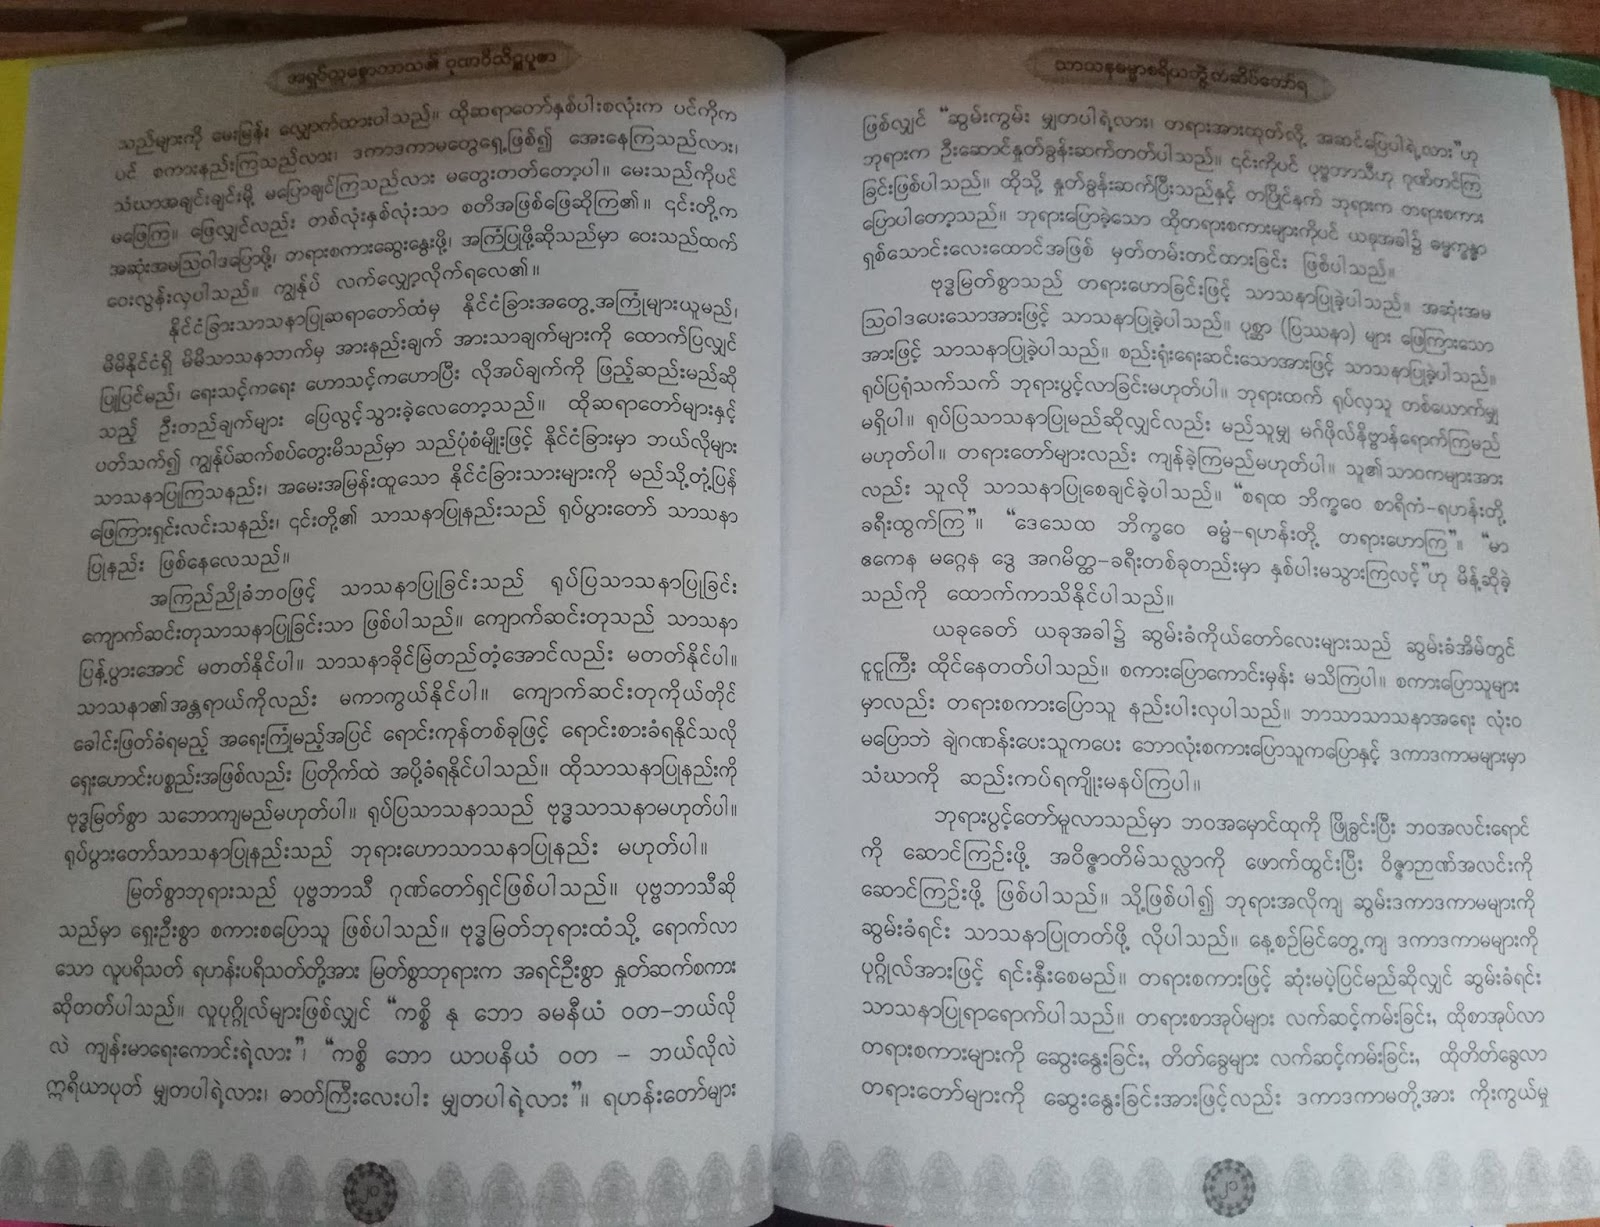 အရှုပ်ထွ
သည်များကို မေးမြန်း လျှောက်ထားပါသည်။ ထိုဆရာတော်နှစ်ပါးစလုံးက ပင်ကိုက
ပင် စကားနည်းကြသည်လား၊ ဒကာဒကာမတွေရှေ့ဖြစ်၍ အေးနေကြသည်လား၊
သံဃာအချင်းချင်းမို့ မပြောချင်ကြသည်လား မတွေးတတ်တော့ပါ။ မေးသည်ကိုပင်
မဖြေကြ။ ဖြေလျှင်လည်း တစ်လုံးနှစ်လုံးသာ စတိအဖြစ်ဖြေဆိုကြ၏။ ၎င်းတို့က
အဆုံးအမဩဝါဒပြောဖို့၊ တရားစကားဆွေးနွေးဖို့၊ အကြံပြုဖို့ဆိုသည်မှာ ဝေးသည်ထက်
ဝေးလွန်းလှပါသည်။ ကျွန်ုပ် လက်လျှော့လိုက်ရလေ၏။
နိုင်ငံခြားသာသနာပြုဆရာတော်ထံမှ နိုင်ငံခြားအတွေ့အကြုံများယူမည်၊
မိမိနိုင်ငံရှိ မိမိသာသနာဘက်မှ အားနည်းချက် အားသာချက်များကို ထောက်ပြလျှင်
ပြုပြင်မည်၊ ရေးသင့်ကရေး ဟောသင့်ကဟောပြီး လိုအပ်ချက်ကို ဖြည့်ဆည်းမည်ဆို
သည့် ဦးတည်ချက်များ ပြေလွင့်သွားခဲ့လေတော့သည်။ ထိုဆရာတော်များနှင့်
ပတ်သက်၍ ကျွန်ုပ်ဆက်စပ်တွေးမိသည်မှာ သည်ပုံစံမျိုးဖြင့် နိုင်ငံခြားမှာ ဘယ်လိုများ
သာသနာပြုကြသနည်း၊ အမေးအမြန်းထူသော နိုင်ငံခြားသားများကို မည်သို့တုံ့ပြန်
ဖြေကြားရှင်းလင်းသနည်း၊ ၎င်းတို့၏ သာသနာပြုနည်းသည် ရုပ်ပွားတော် သာသနာ
ပြုနည်း ဖြစ်နေလေသည်။
အကြည်ညိုခံဘဝဖြင့် သာသနာပြုခြင်းသည် ရုပ်ပြသာသနာပြုခြင်း
ကျောက်ဆင်းတုသာသနာပြုခြင်းသာ ဖြစ်ပါသည်။ ကျောက်ဆင်းတုသည် သာသနာ
ပြန့်ပွားအောင် မတတ်နိုင်ပါ။ သာသနာခိုင်မြဲတည်တံ့အောင်လည်း မတတ်နိုင်ပါ။
သာသနာ၏အန္တရာယ်ကိုလည်း မကာကွယ်နိုင်ပါ။ ကျောက်ဆင်းတုကိုယ်တိုင်
ခေါင်းဖြတ်ခံရမည့် အရေးကြုံမည့်အပြင် ရောင်းကုန်တစ်ခုဖြင့် ရောင်းစားခံရနိုင်သလို
ရှေးဟောင်းပစ္စည်းအဖြစ်လည်း ပြတိုက်ထဲ အပို့ခံရနိုင်ပါသည်။ ထိုသာသနာပြုနည်းကို
ဗုဒ္ဓမြတ်စွာ သဘောကျမည်မဟုတ်ပါ။ ရုပ်ပြသာသနာသည် ဗုဒ္ဓသာသနာမဟုတ်ပါ။
ရုပ်ပွားတော်သာသနာပြုနည်းသည် ဘုရားဟောသာသနာပြုနည်း မဟုတ်ပါ။
မြတ်စွာဘုရားသည် ပုဗ္ဗဘာသီ ဂုဏ်တော်ရှင်ဖြစ်ပါသည်။ ပုဗ္ဗဘာသီဆို
သည်မှာ ရှေးဦးစွာ စကားစပြောသူ ဖြစ်ပါသည်။ ဗုဒ္ဓမြတ်ဘုရားထံသို့ ရောက်လာ
သော လူပရိသတ် ရဟန်းပရိသတ်တို့အား မြတ်စွာဘုရားက အရင်ဦးစွာ နှုတ်ဆက်စကား
ဆိုတတ်ပါသည်။ လူပုဂ္ဂိုလ်များဖြစ်လျှင် “ကစ္စိ နု ဘော ခမနီယံ ဝတ–ဘယ်လို
လဲ ကျန်းမာရေးကောင်းရဲ့လား”၊ “ကစ္စိ ဘော ယာပနိယံ ဝတ – ဘယ်လိုလဲ
ဣရိယာပုတ် မျှတပါရဲ့လား၊ ဓာတ်ကြီးလေးပါး မျှတပါရဲ့လား”။ ရဟန်းတော်များ
၂၀
သာသနဓမ္မာစရိယဘွဲ့တံဆိပ်တော်ရ
ဖြစ်လျှင် “ဆွမ်းကွမ်း မျှတပါရဲ့လား၊ တရားအားထုတ်လို့ အဆင်ပြေပါရဲ့လား”ဟု
ဘုရားက ဦးဆောင်နှုတ်ခွန်းဆက်တတ်ပါသည်။ ၎င်းကိုပင် ပုဗ္ဗဘာသီဟု ဂုဏ်တင်ကြ
ခြင်းဖြစ်ပါသည်။ ထိုသို့ နှုတ်ခွန်းဆက်ပြီးသည်နှင့် တပြိုင်နက် ဘုရားက တရားစကား
ပြောပါတော့သည်။ ဘုရားပြောခဲ့သော ထိုတရားစကားများကိုပင် ယခုအခါ၌ ဓမ္မက္ခန္ဓာ
ရှစ်သောင်းလေးထောင်အဖြစ် မှတ်တမ်းတင်ထားခြင်း ဖြစ်ပါသည်။
ဗုဒ္ဓမြတ်စွာသည် တရားဟောခြင်းဖြင့် သာသနာပြုခဲ့ပါသည်။ အဆုံးအမ
ဩဝါဒပေးသောအားဖြင့် သာသနာပြုခဲ့ပါသည်။ ပုစ္ဆာ (ပြဿနာ) များ ဖြေကြားသော
အားဖြင့် သာသနာပြုခဲ့ပါသည်။ စည်းရုံးရေးဆင်းသောအားဖြင့် သာသနာပြုခဲ့ပါသည်။
ရုပ်ပြရုံသက်သက် ဘုရားပွင့်လာခြင်းမဟုတ်ပါ။ ဘုရားထက် ရုပ်လှသူ တစ်ယောက်မျှ
မရှိပါ။ ရုပ်ပြသာသနာပြုမည်ဆိုလျှင်လည်း မည်သူမျှ မဂ်ဖိုလ်နိဗ္ဗာန်ရောက်ကြမည်
မဟုတ်ပါ။ တရားတော်များလည်း ကျန်ခဲ့ကြမည်မဟုတ်ပါ။ သူ၏သာဝကများအား
လည်း သူလို သာသနာပြုစေချင်ခဲ့ပါသည်။ “စရထ ဘိက္ခဝေ စာရိကံ–ရဟန်းတို့
ခရီးထွက်ကြ”။ “ဒေသေထ ဘိက္ခဝေ ဓမ္မံ–ရဟန်းတို့ တရားဟောကြ”။ “မာ
ဧကေန မဂ္ဂေန ဒွေ အဂမိတ္ထ–ခရီးတစ်ခုတည်းမှာ နှစ်ပါးမသွားကြလင့်”ဟု မိန့်ဆိုခဲ့
သည်ကို ထောက်ကာသိနိုင်ပါသည်။
ယခုခေတ် ယခုအခါ၌ ဆွမ်းခံကိုယ်တော်လေးများသည် ဆွမ်းခံအိမ်တွင်
ငူငူကြီး ထိုင်နေတတ်ပါသည်။ စကားပြောကောင်းမှန်း မသိကြပါ။ စကားပြောသူများ
မှာလည်း တရားစကားပြောသူ နည်းပါးလှပါသည်။ ဘာသာသာသနာအရေး လုံးဝ
မပြောဘဲ ချဲဂဏန်းပေးသူကပေး ဘောလုံးစကားပြောသူကပြောနှင့် ဒကာဒကာမများမှာ
သံဃာကို ဆည်းကပ်ရကျိုးမနပ်ကြပါ။
ဘုရားပွင့်တော်မူလာသည်မှာ ဘဝအမှောင်ထုကို ဖြိုခွင်းပြီး ဘဝအလင်းရောင်
ကို ဆောင်ကြဉ်းဖို့ အဝိဇ္ဇာတိမ်သလ္လာကို ဖောက်ထွင်းပြီး ဝိဇ္ဇာဉာဏ်အလင်းကို
ဆောင်ကြဉ်းဖို့ ဖြစ်ပါသည်။ သို့ဖြစ်ပါ၍ ဘုရားအလိုကျ ဆွမ်းဒကာဒကာမများကို
ဆွမ်းခံရင်း သာသနာပြုတတ်ဖို့ လိုပါသည်။ နေ့စဉ်မြင်တွေ့ကျ ဒကာဒကာမများကို
ပုဂ္ဂိုလ်အားဖြင့် ရင်းနှီးစေမည်။ တရားစကားဖြင့် ဆုံးမပဲ့ပြင်မည်ဆိုလျှင် ဆွမ်းခံရင်း
သာသနာပြုရာရောက်ပါသည်။ တရားစာအုပ်များ လက်ဆင့်ကမ်းခြင်း, ထိုစာအုပ်လာ
တရားစကားများကို ဆွေးနွေးခြင်း, တိတ်ခွေများ လက်ဆင့်ကမ်းခြင်း, ထိုတိတ်ခွေလာ
တရားတော်များကို ဆွေးနွေးခြင်းအားဖြင့်လည်း ဒကာဒကာမတို့အား ကိုးကွယ်မှု
၂၁